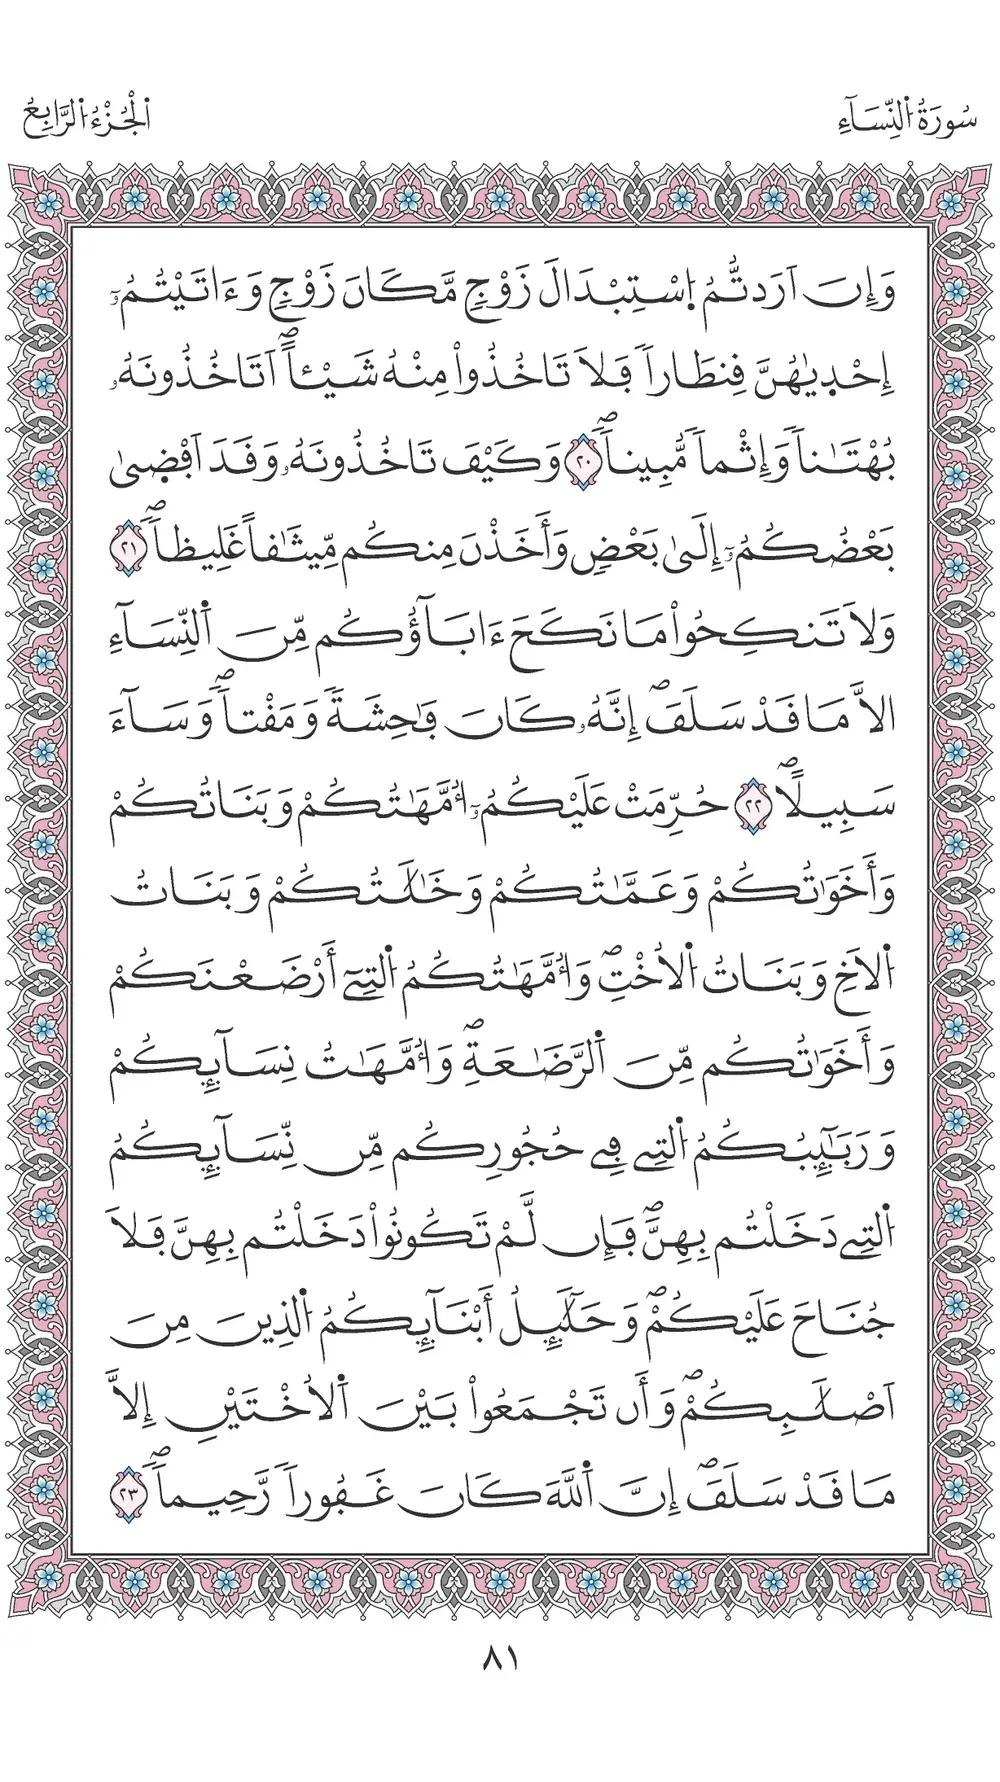 سُورَةُ اُ۬لنِّسَآءِ
اُ۬لْجُزْءُ اُ۬لرَّابِعُ
وَإِنَ اَرَدتُّمُ اُ۪سْتِبْدَالَ زَوْجٖ مَّكَانَ زَوْجٖ وَءَاتَيْتُمُۥٓ
إِحْد۪يٰهُنَّ قِنطَاراٗ فَلَا تَاخُذُواْ مِنْهُ شَيْـٔاًۖ اَتَاخُذُونَهُۥ
بُهْتَٰناٗ وَإِثْماٗ مُّبِيناٗۖ ٢٠ وَكَيْفَ تَاخُذُونَهُۥ وَقَدَ اَفْض۪ىٰ
بَعْضُكُمُۥٓ إِلَىٰ بَعْضٖ وَأَخَذْنَ مِنكُم مِّيثَٰقاً غَلِيظاٗۖ ٢١
وَلَا تَنكِحُواْ مَا نَكَحَ ءَابَآؤُكُم مِّنَ اَ۬لنِّسَآءِ
اِلَّا مَا قَدْ سَلَفَۖ إِنَّهُۥ كَانَ فَٰحِشَةٗ وَمَقْتاٗۖ وَسَآءَ
سَبِيلاًۖ ٢٢ حُرِّمَتْ عَلَيْكُمُۥٓ أُمَّهَٰتُكُمْ وَبَنَاتُكُمْ
وَأَخَوَٰتُكُمْ وَعَمَّٰتُكُمْ وَخَٰلَٰتُكُمْ وَبَنَاتُ
اُ۬لَاخِ وَبَنَاتُ اُ۬لُاخْتِۖ وَأُمَّهَٰتُكُمُ اُ۬لتِےٓ أَرْضَعْنَكُمْ
وَأَخَوَٰتُكُم مِّنَ اَ۬لرَّضَٰعَةِۖ وَأُمَّهَٰتُ نِسَآئِكُمْ
وَرَبَٰٓئِبُكُمُ اُ۬لتِے فِے حُجُورِكُم مِّن نِّسَآئِكُمُ
اُ۬لتِے دَخَلْتُم بِهِنَّۖ فَإِن لَّمْ تَكُونُواْ دَخَلْتُم بِهِنَّ فَلَا
جُنَاحَ عَلَيْكُمْۖ وَحَلَٰٓئِلُ أَبْنَآئِكُمُ اُ۬لذِينَ مِنَ
اَصْلَٰبِكُمْۖ وَأَن تَجْمَعُواْ بَيْنَ اَ۬لُاخْتَيْنِ إِلَّا
مَا قَدْ سَلَفَۖ إِنَّ اَ۬للَّهَ كَانَ غَفُوراٗ رَّحِيماٗۖ ٢٣
٨١